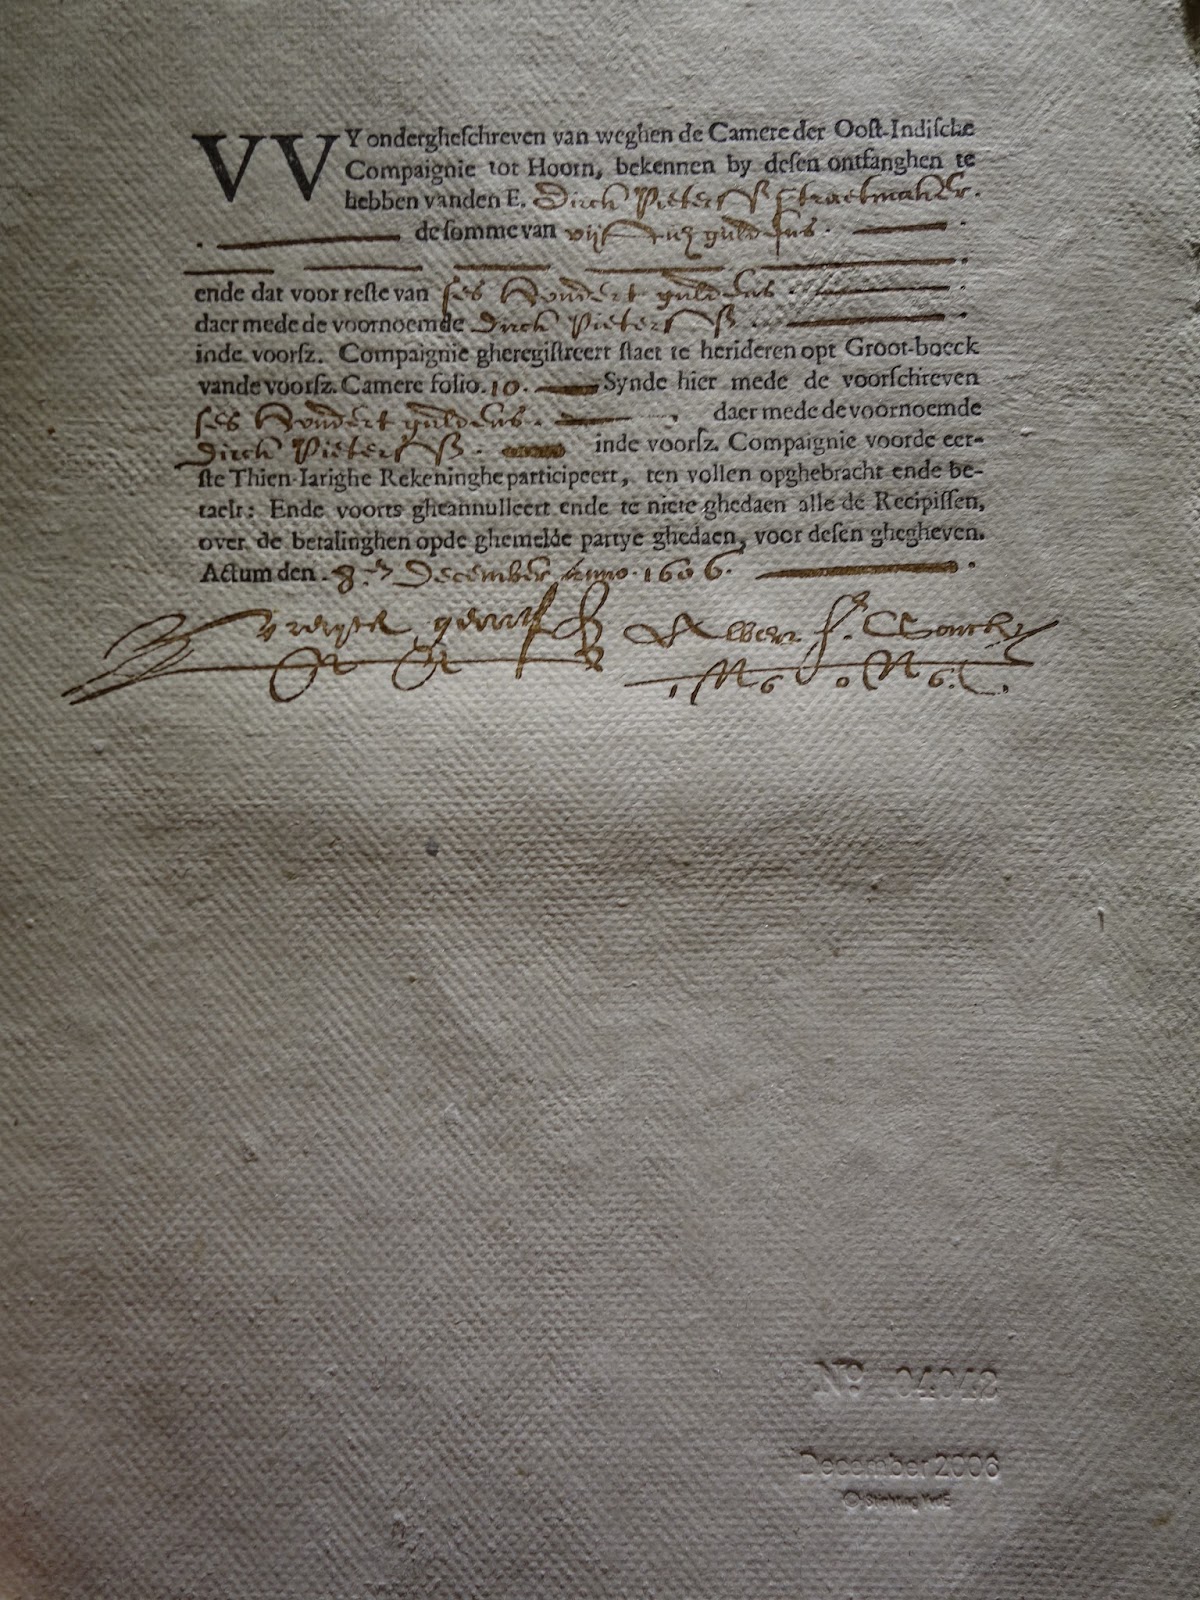 VVY ondergheſchreven van weghen de Camere der Ooſt-Indiſche
Compaignie tot Hoorn, bekennen by deſen ontfanghen te
hebben vanden E. Dirch Pieterſſ Straetmaker.
de ſomme van vijftich guldens.
ende dat voor reſte van ſes hondert guldens.
daer mede de voornoemde Dirch Pieterſſ
inde voorſz. Compaignie gheregiſtreert ſtaet te herideren opt Groot-boeck
vande voorſz. Camere folio. 10. Synde hier mede de voorſchreven
ſes hondert guldens. daer mede de voornoemde
Dirch Pieterſſ. inde voorſz. Compaignie voorde eer-
ſte Thien-Iarighe Rekeninghe participeert, ten vollen opghebracht ende be-
taelt: Ende voorts gheannulleert ende te niete ghedaen alle de Recipiſſen,
over de betalinghen opde ghemelde partye ghedaen, voor deſen ghegheven.
Actum den. 9.en December anno. 1606.
No 04042
December 2006
© Stichting